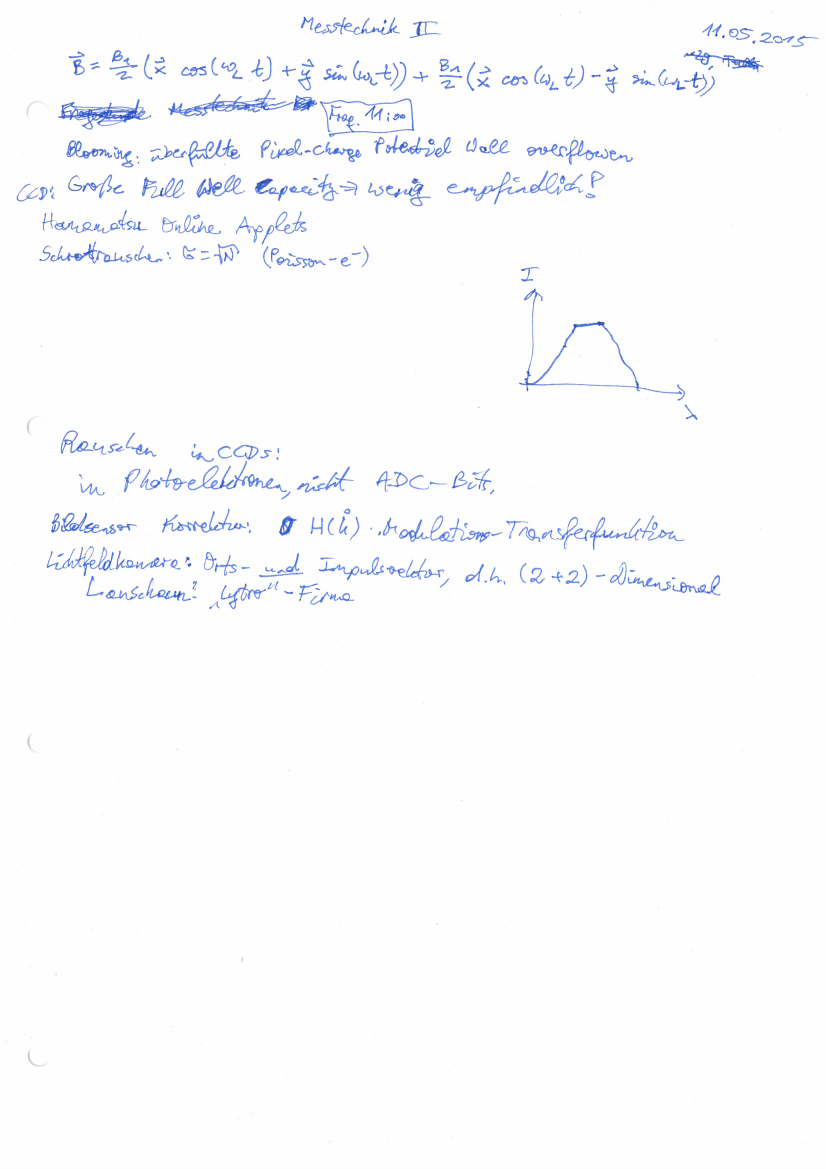 Messtechnik II
11.05.2015
B⃗ = B₁/2 (x⃗ cos(ω_L t) + y⃗ sin(ω_L t)) + B₁/2 (x⃗ cos(ω_L t) − y⃗ sin(ω_L t))
Messtechnik
Frag. 11:00
Blooming: überfüllte Pixel-charge Potential Well overflowen
CCD: Große Full Well Capacity → wenig empfindlich?
Hamamatsu Online Applets
Schrottrauschen: σ = √N (Poisson-e⁻)
I
λ
Rauschen in CCDs:
in Photoelektronen, nicht ADC-Bits,
Bildsensor Korrektur: H(k) Modulations-Transferfunktion
Lichtfeldkamera: Orts- und Impulsvektor, d.h. (2+2)-Dimensional
"Lytro"-Firma